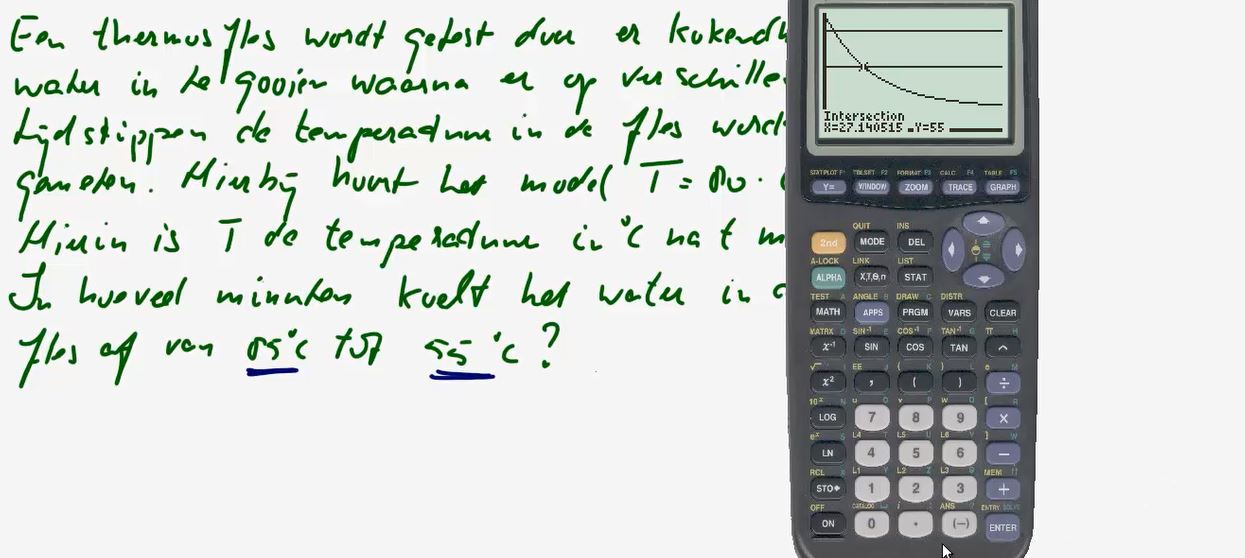 Een thermosfles wordt getest door er kokend
water in te gooien waarna er op verschille
tijdstippen de temperatuur in de fles word
gemeten. Hierbij hoort het model T = 80 ·
Hierin is T de temperatuur in °C na t m
In hoeveel minuten koelt het water in d
fles af van 85°C tot 55°C?
Intersection
X=27.140515 Y=55
STAT PLOT F1 TBLSET F2 FORMAT F3 CALC F4 TABLE F5
Y= WINDOW ZOOM TRACE GRAPH
QUIT INS
2nd MODE DEL
A-LOCK LINK LIST
ALPHA X,T,Θ,n STAT
TEST A ANGLE B DRAW C DISTR
MATH APPS PRGM VARS CLEAR
MATRX D SIN⁻¹ E COS⁻¹ F TAN⁻¹ G π H
x⁻¹ SIN COS TAN ^
√ I EE J { K } L e M
x² , ( ) ÷
10ˣ N u O v P w Q [ R
LOG 7 8 9 ×
eˣ S L4 T L5 U L6 V ] W
LN 4 5 6 −
RCL X L1 Y L2 Z L3 θ MEM "
STO▸ 1 2 3 +
OFF CATALOG i ANS ENTRY SOLVE
ON 0 . (−) ENTER